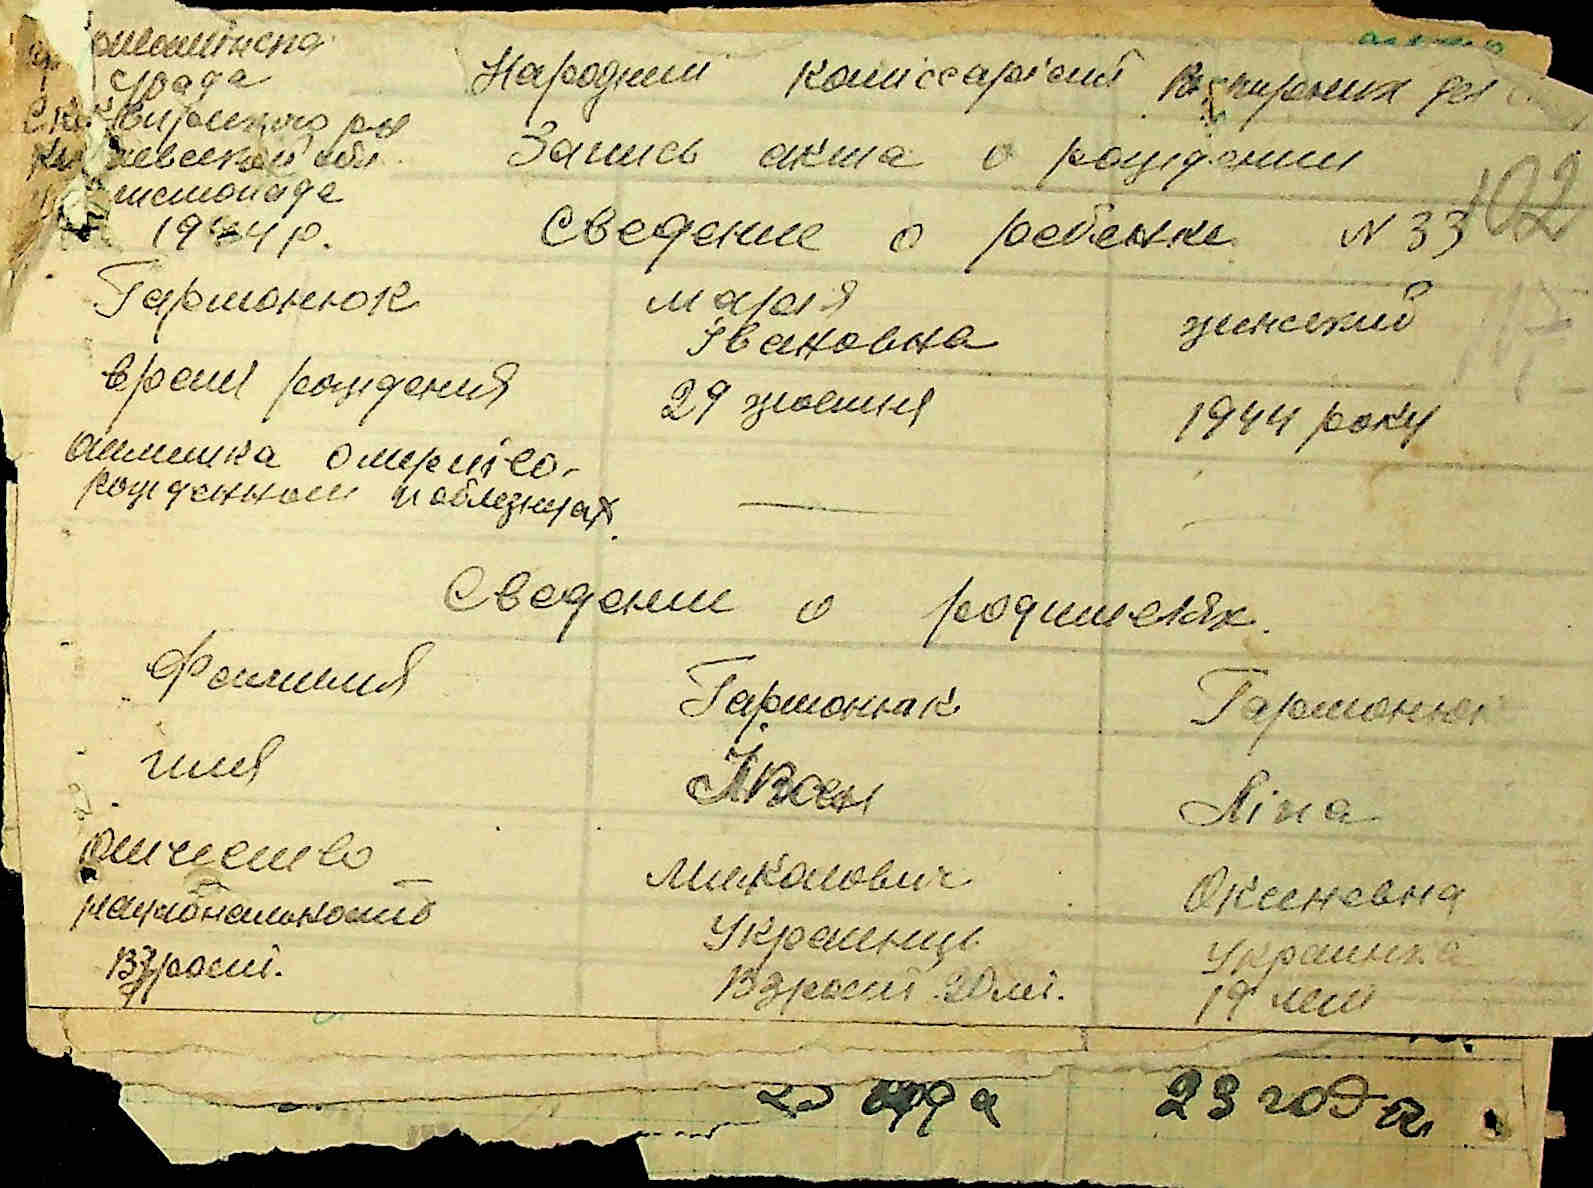 с/рада
Сквирского рн
Киевской обл.
листопаде
1944 р.
Народний комиссаріат Внутрених дел
Запись акта о рождении
102
Сведение о ребенке N 33
Гармонюк Марія женский
Івановна
Время рождения 29 жовтня 1944 року
Отметка о мертво-
рожденном и близнецах.
Сведение о родителях.
Фамилия Гармонюк Гармонюк
имя Іван Ліна
Отчество Миколович Оксеневна
Национальность Украинець Украинка
Взрост. Взрост 20 лт. 19 лет
года 23 года